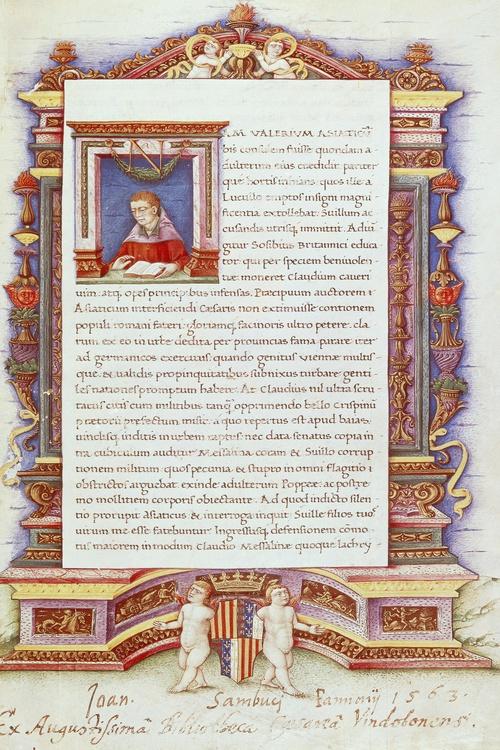 NAM VALERIVM ASIATICŪ
bis consulem fuisse quondam a
dulterum eius credidit pariter
que hortis inhians quos ille a
Lucullo emptos insigni magni
ficentia extollebat. Suillum ac
cusandis utrisq; immittit. Adiū
gitur Sosibius Britannici educa
tor qui per speciem beniuolen
tiæ moneret Claudium caueri
uim. atq; opes principibus infensas. Præcipuum auctorem
Asiaticum interficiendi Cæsaris non extimuisse contionem
populi romani fateri. gloriamq; facinoris ultro petere. cla
rum ex eo in urbe dedita per prouincias fama parare iter
ad germanicos exercitus. quando genitus Viennæ multis
que. & ualidis propinquitatibus subnixus turbare genti
les nationes promptum haberet. At Claudius nil ultra scru
tatus citis cum militibus tanq̄ opprimendo bello Crispinū
prætorii præfectum misit. a quo repertus est apud baias.
uinclisq; inditis in urbem raptus. nec data senatus copia in
tra cubiculum auditur Messalina coram & Suillo corrup
tionem militum quos pecunia & stupro in omni flagitio
obstrictos arguebat exinde adulterum Poppææ ac postre
mo mollitiem corporis obiectante. Ad quod indicto silen
tio prorupit asiaticus & interroga inquit Suille filios tuos
uirum me esse fatebuntur Ingressusq; defensionem cōmo
tus maiorem in modum Claudio Messalinæ quoque lachry
Joan. Sambuci Pannonij 1563.
Ex Augustissimâ Bibliotheca Cæsareâ Vindobonensi.